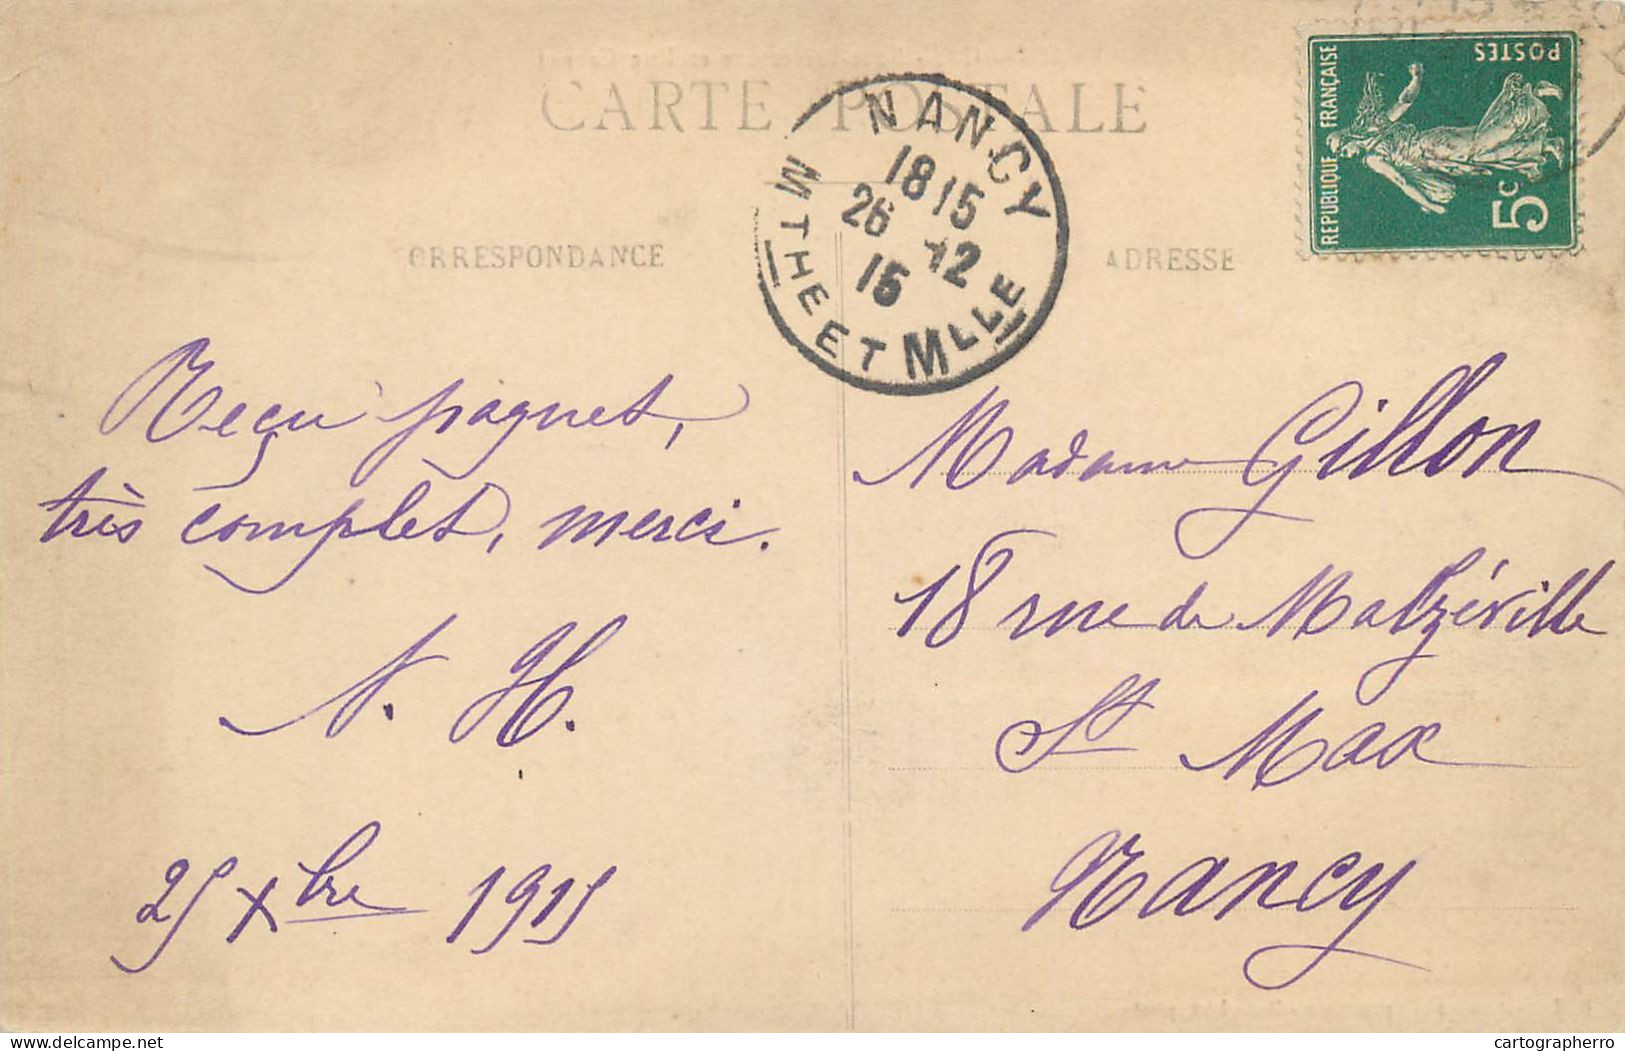 CARTE POSTALE
NANCY
18 15
26 12
15
MTHE ET MLLE
REPUBLIQUE FRANÇAISE
POSTES
5c
ORRESPONDANCE
ADRESSE
Reçu paquet,
très complet, merci.
N. H.
25 Xbre 1915
Madame Gillon
18 rue de Malzéville
St Max
Nancy
cartographerro